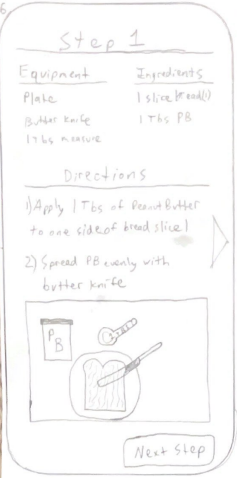 6
Step 1
Equipment
Ingredients
Plate
1 slice bread(1)
Butter Knife
1 Tbs PB
1 Tbs measure
Directions
1) Apply 1 Tbs of Peanut Butter
to one side of bread slice 1
2) Spread PB evenly with
butter knife
PB
Next Step